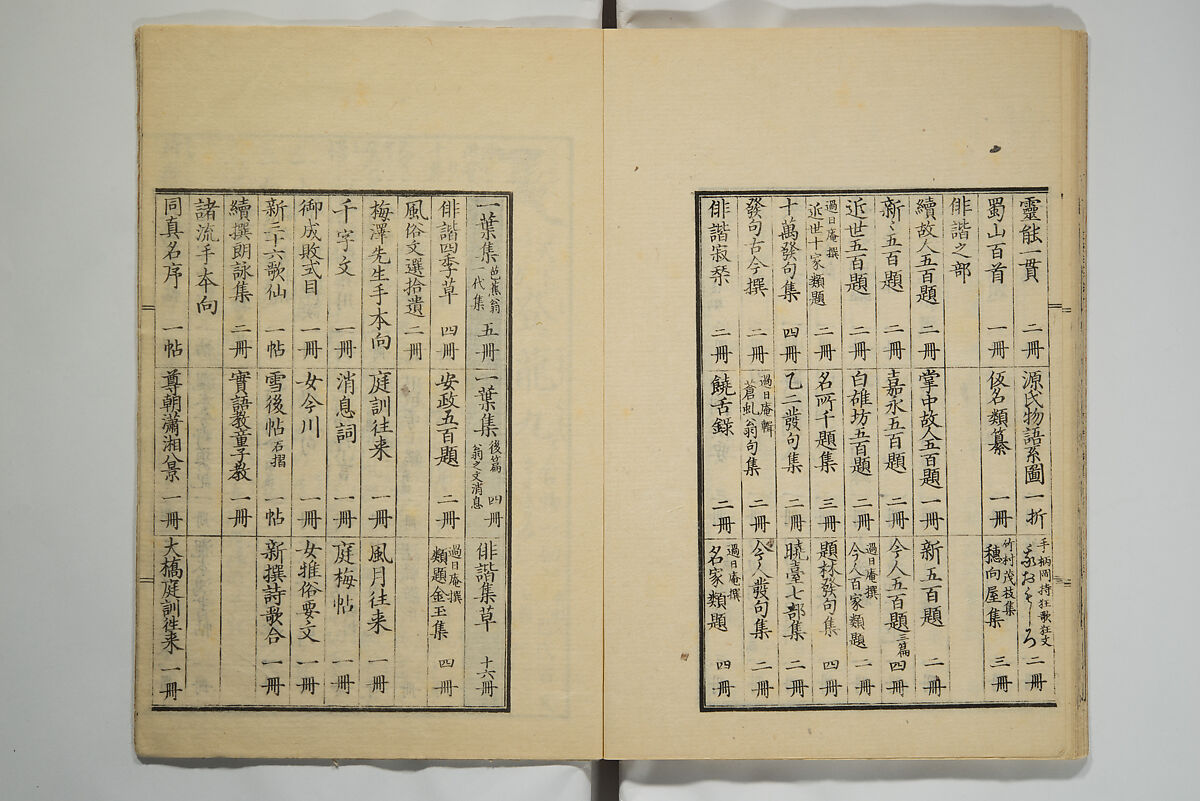 靈能一貫 二冊 源氏物語系圖 一折 手柄岡持狂歌狂文 我おもしろ 二冊
蜀山百首 一冊 仮名類纂 一冊 竹村茂枝集 穗向屋集 三冊
俳諧之部
續故人五百題 二冊 掌中故人五百題 一冊 新五百題 二冊
新〻五百題 二冊 嘉永五百題 二冊 今人五百題 三篇 四冊
近世五百題 二冊 白雄坊五百題 二冊 過日庵撰 今人百家類題 二冊
過日庵撰 近世十家類題 二冊 名所千題集 三冊 題林發句集 四冊
十萬發句集 四冊 乙二發句集 二冊 曉臺七部集 二冊
發句古今撰 二冊 過日庵輯 蒼虬翁句集 二冊 今人發句集 二冊
俳諧寂栞 二冊 饒舌録 二冊 過日庵撰 名家類題 四冊
一葉集 芭蕉翁一代集 五冊 一葉集 後篇 翁之文消息 四冊 俳諧集草 十六冊
俳諧四季草 四冊 安政五百題 二冊 過日庵撰 類題金玉集 四冊
風俗文選拾遺 二冊
梅澤先生手本向 庭訓往来 一冊 風月往来 一冊
千字文 一冊 消息詞 一冊 庭梅帖 一冊
御成敗式目 一冊 女今川 一冊 女雅俗要文 一冊
新三十六歌仙 一帖 雪後帖 石摺 一帖 新撰詩歌合 一冊
續撰朗詠集 二冊 實語教童子教 一冊
諸流手本向
同真名序 一帖 尊朝瀟湘八景 一冊 大橋庭訓往来 一冊